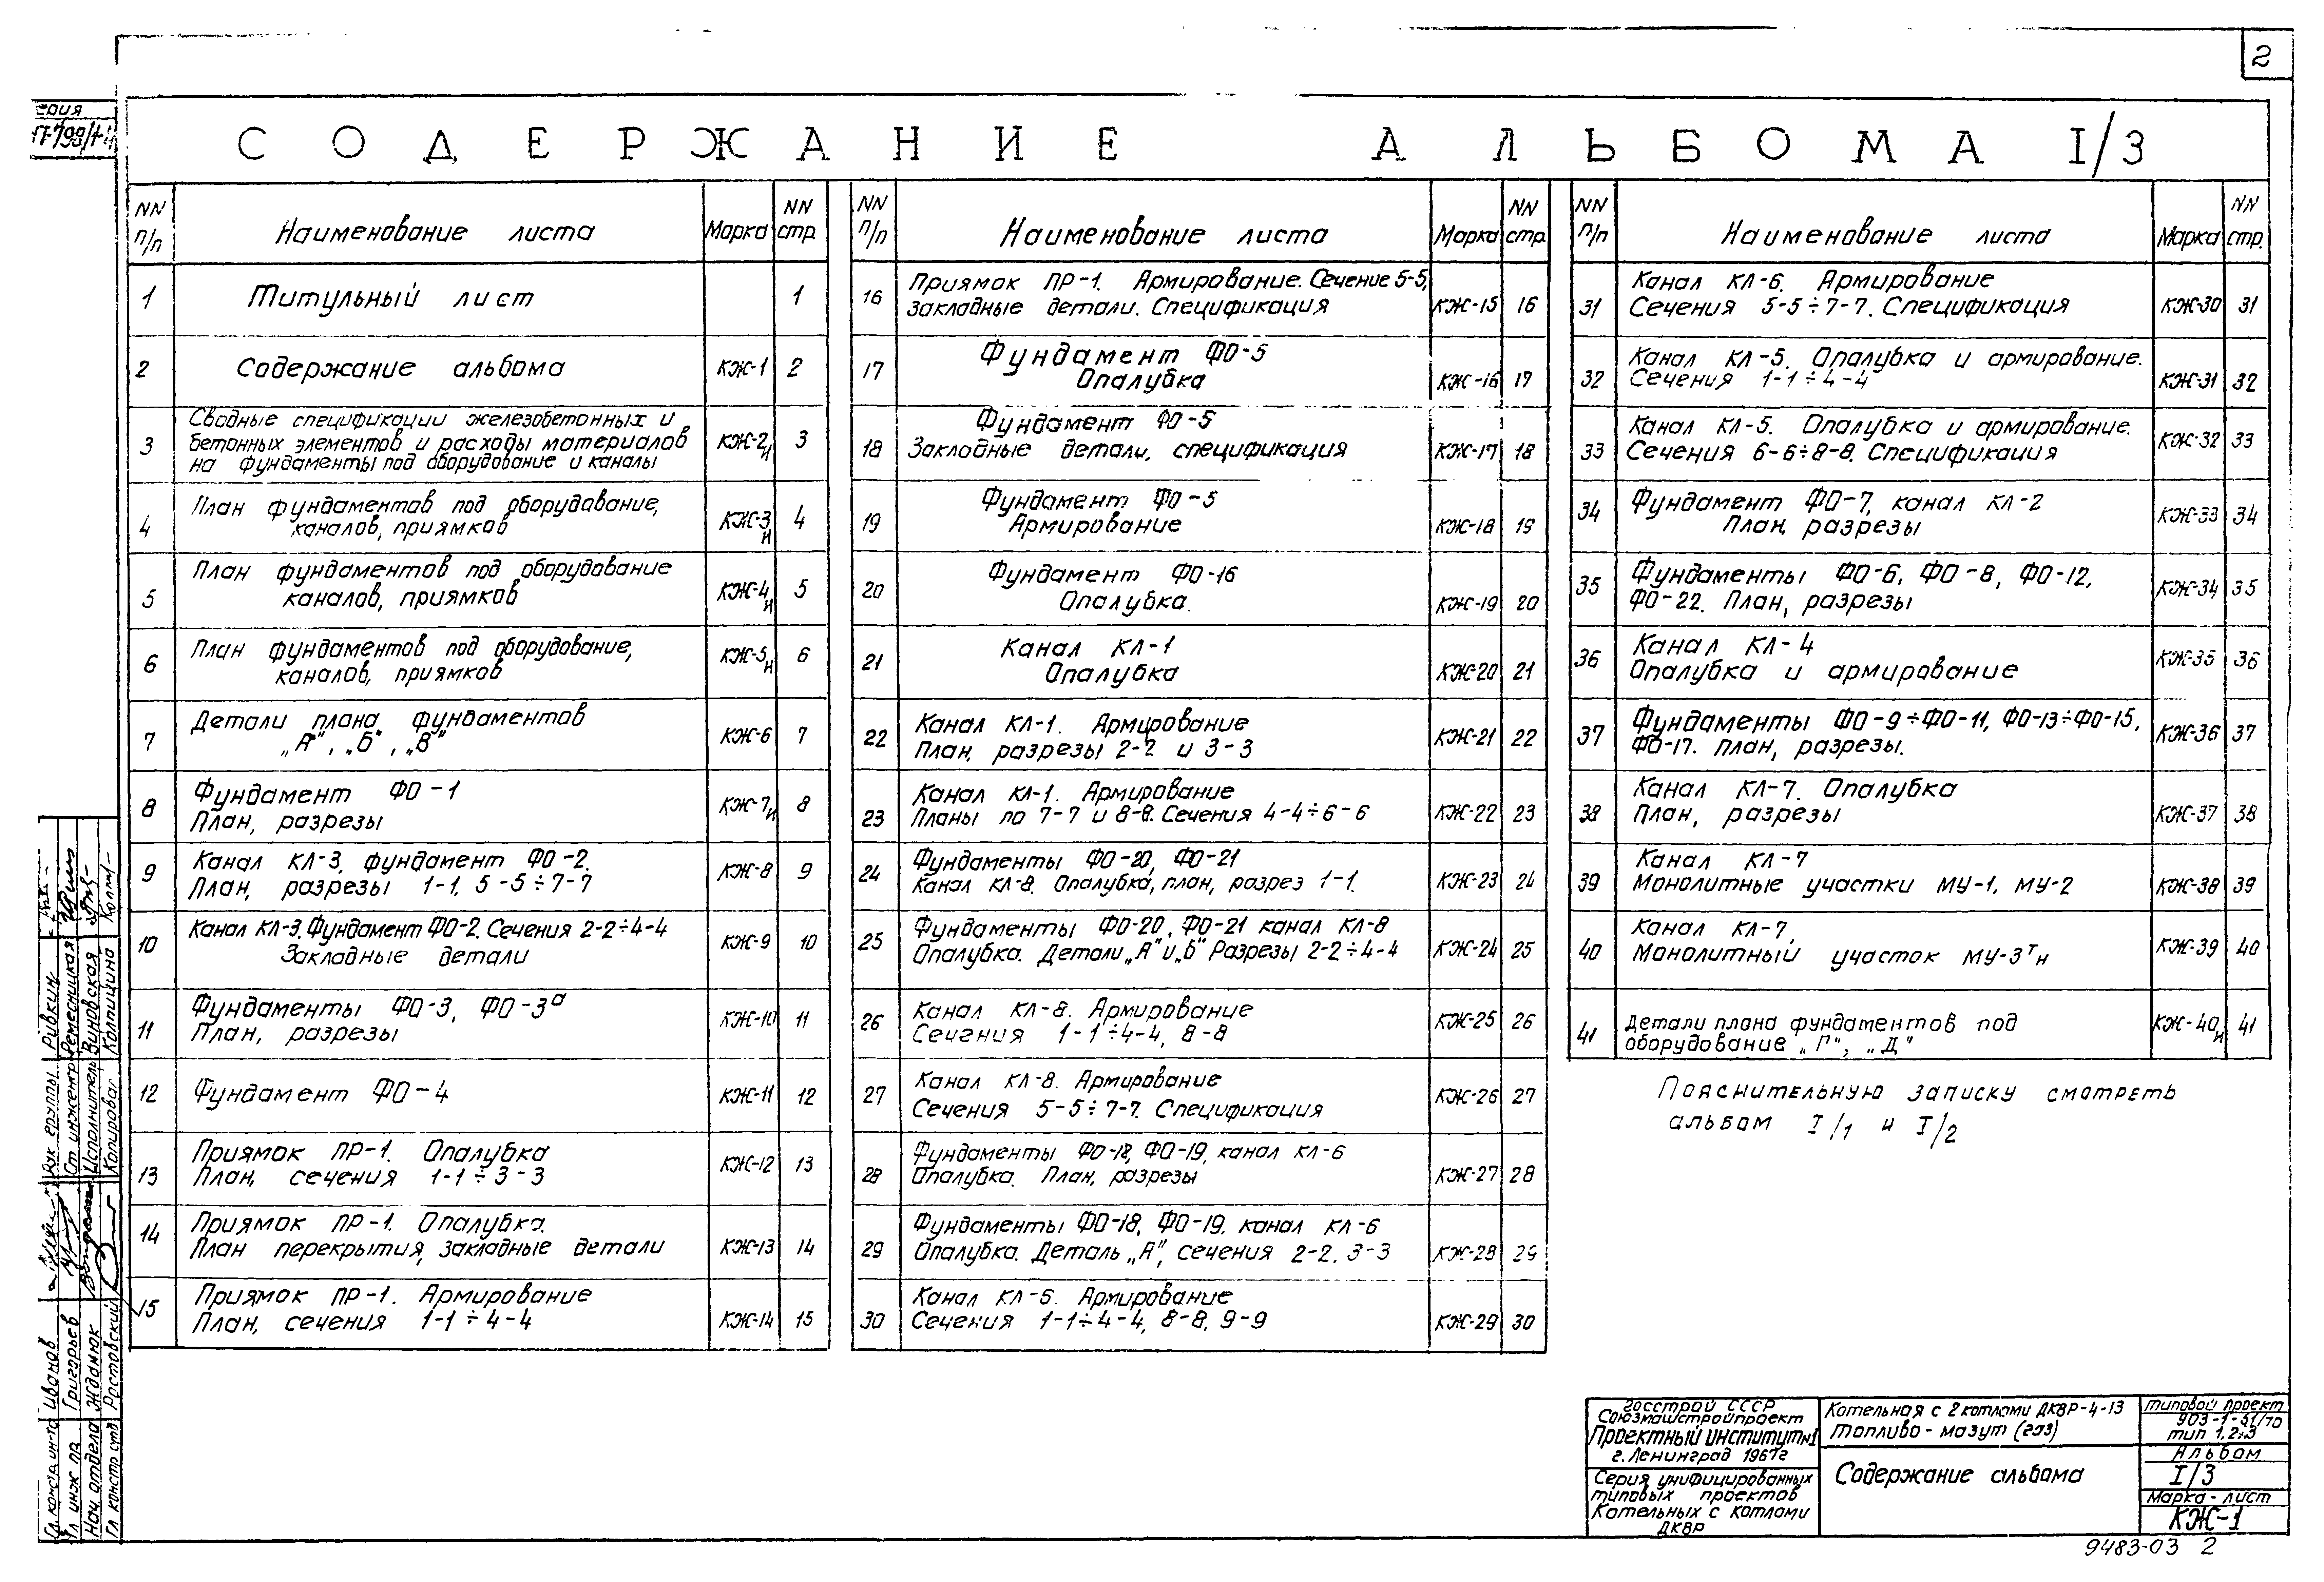 2
СОДЕРЖАНИЕ АЛЬБОМА I/3
NN п/п Наименование листа Марка NN стр.
1 Титульный лист 1
2 Содержание альбома КЖ-1 2
3 Сводные спецификации железобетонных и
бетонных элементов и расходы материалов
на фундаменты под оборудование и каналы КЖ-2и 3
4 План фундаментов под оборудование,
каналов, приямков КЖ-3и 4
5 План фундаментов под оборудование
каналов, приямков КЖ-4и 5
6 План фундаментов под оборудование,
каналов, приямков КЖ-5и 6
7 Детали плана фундаментов
„А", „Б", „В" КЖ-6 7
8 Фундамент ФО-1
План, разрезы КЖ-7и 8
9 Канал КЛ-3, фундамент ФО-2.
План, разрезы 1-1, 5-5÷7-7 КЖ-8 9
10 Канал КЛ-3. Фундамент ФО-2. Сечения 2-2÷4-4
Закладные детали КЖ-9 10
11 Фундаменты ФО-3, ФО-3а
План, разрезы КЖ-10 11
12 Фундамент ФО-4 КЖ-11 12
13 Приямок ПР-1. Опалубка
План, сечения 1-1÷3-3 КЖ-12 13
14 Приямок ПР-1. Опалубка.
План перекрытия, закладные детали КЖ-13 14
15 Приямок ПР-1. Армирование
План, сечения 1-1÷4-4 КЖ-14 15
NN п/п Наименование листа Марка NN стр.
16 Приямок ПР-1. Армирование. Сечение 5-5,
закладные детали. Спецификация КЖ-15 16
17 Фундамент ФО-5
Опалубка КЖ-16 17
18 Фундамент ФО-5
Закладные детали, спецификация КЖ-17 18
19 Фундамент ФО-5
Армирование КЖ-18 19
20 Фундамент ФО-16
Опалубка. КЖ-19 20
21 Канал КЛ-1
Опалубка КЖ-20 21
22 Канал КЛ-1. Армирование
План, разрезы 2-2 и 3-3 КЖ-21 22
23 Канал КЛ-1. Армирование
Планы по 7-7 и 8-8. Сечения 4-4÷6-6 КЖ-22 23
24 Фундаменты ФО-20, ФО-21
Канал КЛ-8. Опалубка, план, разрез 1-1. КЖ-23 24
25 Фундаменты ФО-20, ФО-21 канал КЛ-8
Опалубка. Детали „А" и „Б" Разрезы 2-2÷4-4 КЖ-24 25
26 Канал КЛ-8. Армирование
Сечения 1-1÷4-4, 8-8 КЖ-25 26
27 Канал КЛ-8. Армирование
Сечения 5-5÷7-7. Спецификация КЖ-26 27
28 Фундаменты ФО-18, ФО-19, канал КЛ-6
Опалубка. План, разрезы КЖ-27 28
29 Фундаменты ФО-18, ФО-19. канал КЛ-6
Опалубка. Деталь „А", сечения 2-2, 3-3 КЖ-28 29
30 Канал КЛ-6. Армирование
Сечения 1-1÷4-4, 8-8, 9-9 КЖ-29 30
NN п/п Наименование листа Марка NN стр.
31 Канал КЛ-6. Армирование
Сечения 5-5÷7-7. Спецификация КЖ-30 31
32 Канал КЛ-5. Опалубка и армирование.
Сечения 1-1÷4-4 КЖ-31 32
33 Канал КЛ-5. Опалубка и армирование.
Сечения 6-6÷8-8. Спецификация КЖ-32 33
34 Фундамент ФО-7, канал КЛ-2
План, разрезы КЖ-33 34
35 Фундаменты ФО-6, ФО-8, ФО-12,
ФО-22. План, разрезы КЖ-34 35
36 Канал КЛ-4
Опалубка и армирование КЖ-35 36
37 Фундаменты ФО-9÷ФО-11, ФО-13÷ФО-15,
ФО-17. План, разрезы. КЖ-36 37
38 Канал КЛ-7. Опалубка
План, разрезы КЖ-37 38
39 Канал КЛ-7
Монолитные участки МУ-1, МУ-2 КЖ-38 39
40 Канал КЛ-7.
Монолитный участок МУ-3тн КЖ-39 40
41 Детали плана фундаментов под
оборудование „Г", „Д" КЖ-40и 41
Пояснительную записку смотреть
альбом I/1 и I/2
Госстрой СССР
Союзмашстройпроект
Проектный институт N1
г. Ленинград 1967г
Серия унифицированных
типовых проектов
Котельных с котлами
ДКВР
Котельная с 2 котлами ДКВР-4-13
Топливо - мазут (газ)
Содержание альбома
Типовой проект
903-1-51/70
тип 1,2,3
Альбом
I/3
Марка-лист
КЖ-1
9483-03 2
Рук группы Ривкин
Ст инженер Ремесницкая
Исполнитель Виновская
Копировал Колпицина
Гл. конс.д.ин-та Иванов
Гл инж пр. Григорьев
Нач. отдела Жданюк
Гл констр. отд Ростовский